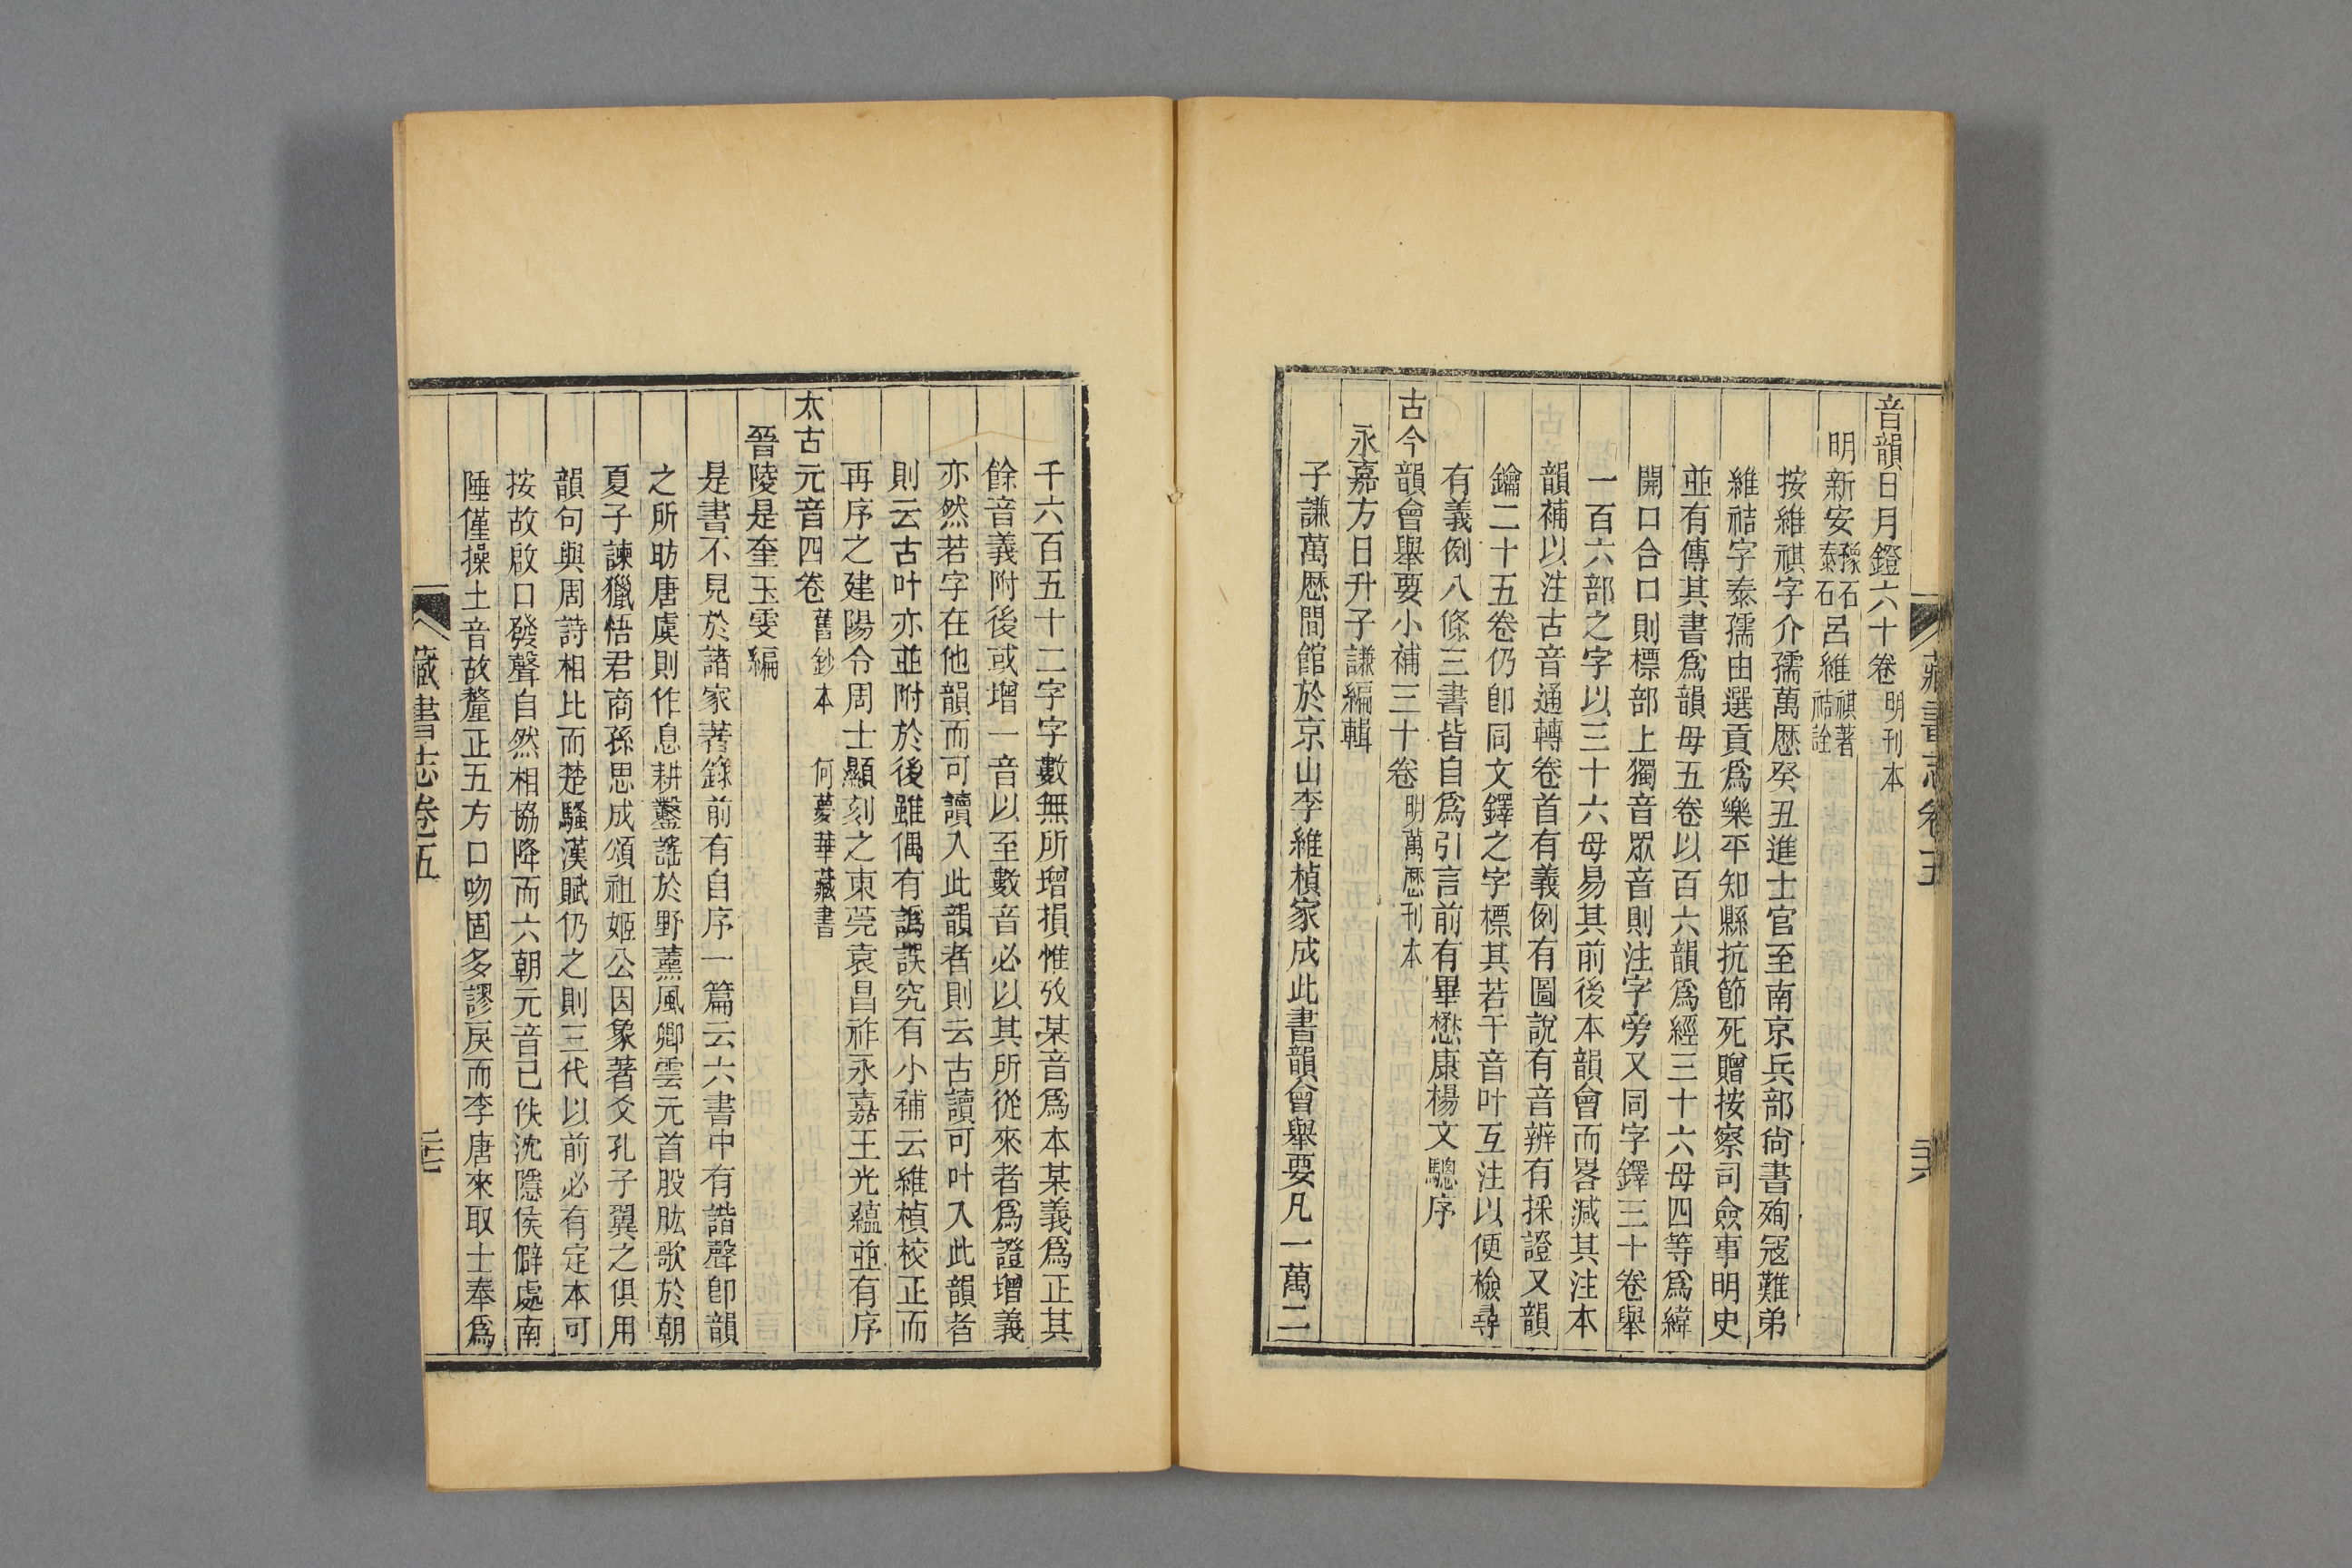 藏書志卷五
音韻日月鐙六十卷 明刊本
明新安 豫石 泰石 呂維 祺著 祮詮
按維祺字介孺萬厯癸丑進士官至南京兵部尙書殉寇難弟
維祮字泰孺由選貢爲樂平知縣抗節死贈按察司僉事明史
並有傳其書爲韻母五卷以百六韻爲經三十六母四等爲緯
開口合口則標部上獨音眾音則注字旁又同字鐸三十卷舉
一百六部之字以三十六母易其前後本韻會而畧減其注本
韻補以注古音通轉卷首有義例有圖說有音辨有採證又韻
鑰二十五卷仍卽同文鐸之字標其若干音叶互注以便檢尋
有義例八條三書皆自爲引言前有畢懋康楊文驄序
古今韻會舉要小補三十卷 明萬厯刊本
永嘉方日升子謙編輯
子謙萬厯間館於京山李維楨家成此書韻會舉要凡一萬二
千六百五十二字字數無所增損惟攷某音爲本某義爲正其
餘音義附後或增一音以至數音必以其所從來者爲證增義
亦然若字在他韻而可讀入此韻者則云古讀可叶入此韻者
則云古叶亦並附於後雖偶有譌誤究有小補云維楨校正而
再序之建陽令周士顯刻之東莞袁昌祚永嘉王光蘊並有序
太古元音四卷 舊鈔本 何夢華藏書
晉陵是奎玉雯編
是書不見於諸家著錄前有自序一篇云六書中有諧聲卽韻
之所昉唐虞則作息耕鑿謠於野薰風卿雲元首股肱歌於朝
夏子諫獵悟君商孫思成頌祖姬公因象著爻孔子翼之俱用
韻句與周詩相比而楚騷漢賦仍之則三代以前必有定本可
按故啟口發聲自然相協降而六朝元音已佚沈隱侯僻處南
陲僅操土音故釐正五方口吻固多謬戾而李唐來取士奉爲
藏書志卷五